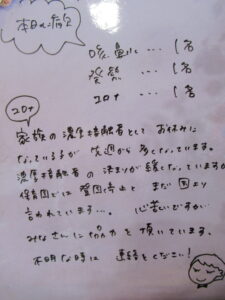 本日の病欠
咳、鼻水 … 1名
発熱 … 1名
コロナ … 1名
コロナ
家族の濃厚接触者として お休みに
なっている子が 先週から多くなっています。
濃厚接触者の 決まりが緩くなっていますが
保育園では 登園停止と まだ 国より
言われています…。 心苦しいですが
みなさんに協力を頂いています。
不明な時は 連絡をください!